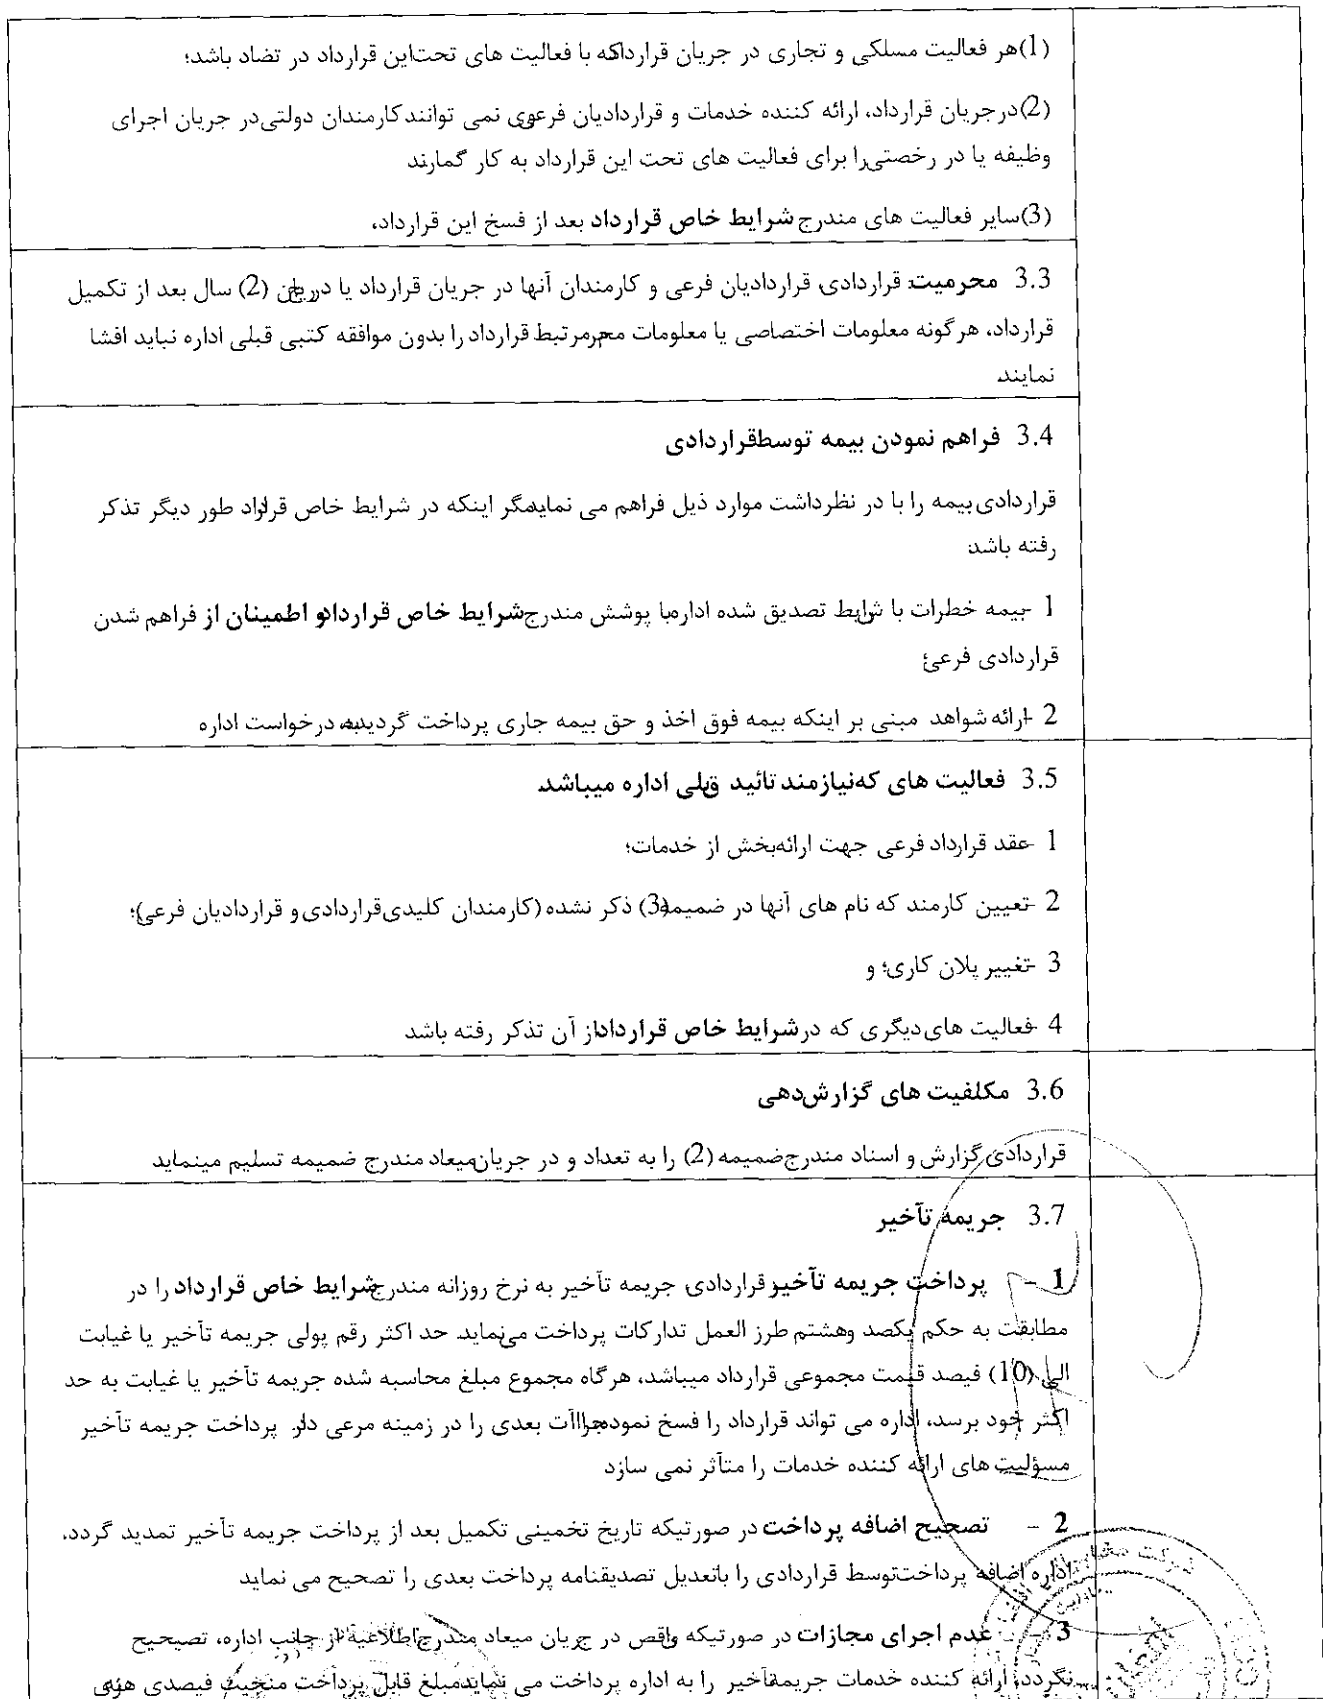 (1)هر فعالیت مسلکی و تجاری در جریان قراردادکه با فعالیت های تحت‌این قرارداد در تضاد باشد؛
(2)درجریان قرارداد، ارائه کننده خدمات و قراردادیان فرعی نمی توانند کارمندان دولتی در جریان اجرای
وظیفه یا در رخصتی را برای فعالیت های تحت این قرارداد به کار گمارند
(3)سایر فعالیت های مندرج شرایط خاص قرارداد بعد از فسخ این قرارداد،
3.3 محرمیت: قراردادی، قراردادیان فرعی و کارمندان آنها در جریان قرارداد یا در (2) سال بعد از تکمیل
قرارداد، هرگونه معلومات اختصاصی یا معلومات محرم مرتبط قرارداد را بدون موافقه کتبی قبلی اداره نباید افشا
نمایند
3.4 فراهم نمودن بیمه توسط قراردادی
قراردادی بیمه را با در نظرداشت موارد ذیل فراهم می نماید مگر اینکه در شرایط خاص قرارداد طور دیگر تذکر
رفته باشد
1 -بیمه خطرات با شرایط تصدیق شده اداره با پوشش مندرج شرایط خاص قرارداد و اطمینان از فراهم شدن
قراردادی فرعی؛
2 -ارائه شواهد مبنی بر اینکه بیمه فوق اخذ و حق بیمه جاری پرداخت گردیده به درخواست اداره
3.5 فعالیت های که نیازمند تائید قبلی اداره میباشد
1 -عقد قرارداد فرعی جهت ارائه بخش از خدمات؛
2 -تعیین کارمند که نام های آنها در ضمیمه (3) ذکر نشده (کارمندان کلیدی قراردادی و قراردادیان فرعی)؛
3 -تغییر پلان کاری؛ و
4 -فعالیت های دیگری که در شرایط خاص قرارداد از آن تذکر رفته باشد
3.6 مکلفیت های گزارش‌دهی
قراردادی گزارش و اسناد مندرج ضمیمه (2) را به تعداد و در جریان میعاد مندرج ضمیمه تسلیم مینماید
3.7 جریمه تآخیر
1 - پرداخت جریمه تآخیر: قراردادی جریمه تآخیر به نرخ روزانه مندرج شرایط خاص قرارداد را در
مطابقت به حکم یکصد وهشتم طرز العمل تدارکات پرداخت می‌نماید. حد اکثر رقم پولی جریمه تآخیر یا غیابت
الی (10) فیصد قیمت مجموعی قرارداد میباشد، هرگاه مجموع مبلغ محاسبه شده جریمه تآخیر یا غیابت به حد
اکثر خود برسد، اداره می تواند قرارداد را فسخ نموده اجراآت بعدی را در زمینه مرعی دارد. پرداخت جریمه تآخیر
مسؤلیت های ارائه کننده خدمات را متآثر نمی سازد
2 - تصحیح اضافه پرداخت: در صورتیکه تاریخ تخمینی تکمیل بعد از پرداخت جریمه تآخیر تمدید گردد،
اداره اضافه پرداخت توسط قراردادی را باتعدیل تصدیقنامه پرداخت بعدی را تصحیح می نماید
3 - عدم اجرای مجازات: در صورتیکه نواقص در جریان میعاد مندرج اطلاعیه از جانب اداره، تصیحیح
نگردد، ارائه کننده خدمات جریمه تآخیر را به اداره پرداخت می نماید. مبلغ قابل پرداخت منحیث فیصدی